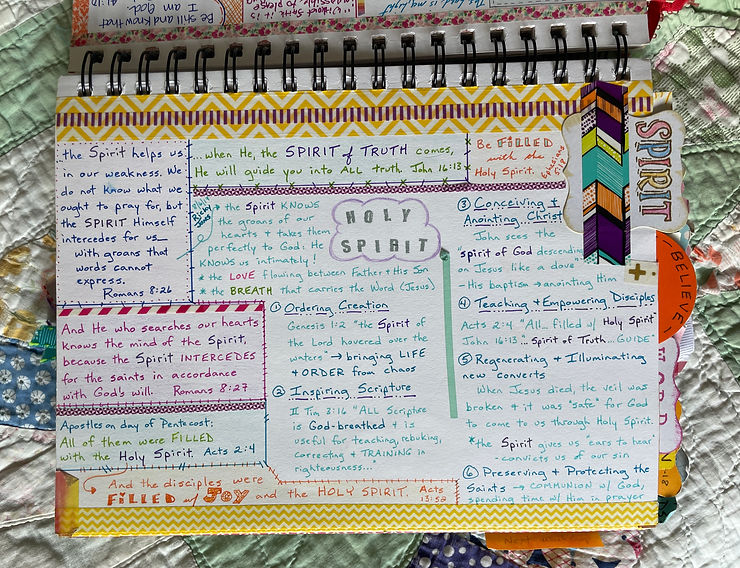 Be still and know that
I am God.
the Spirit helps us
in our weakness. We
do not know what we
ought to pray for, but
the SPIRIT Himself
intercedes for us
with groans that
words cannot
express.
Romans 8:26
...when He, the SPIRIT of TRUTH comes,
He will guide you into ALL truth. John 16:13
Be FILLED
with the
Holy Spirit.
Ephesians
5:18
SPIRIT
BELIEVE
→ the Spirit KNOWS
the groans of our
hearts & takes them
perfectly to God: He
KNOWS us intimately!
* the LOVE flowing between Father & His Son
* the BREATH that carries the Word (Jesus)
HOLY
SPIRIT
And He who searches our hearts
knows the mind of the Spirit,
because the Spirit INTERCEDES
for the saints in accordance
with God's will. Romans 8:27
Apostles on day of Pentecost:
All of them were FILLED
with the Holy Spirit. Acts 2:4
And the disciples were
FILLED w/ JOY and the HOLY SPIRIT. Acts
13:52
① Ordering Creation
Genesis 1:2 "the Spirit of
the Lord hovered over the
waters" → bringing LIFE
& ORDER from chaos
② Inspiring Scripture
II Tim 3:16 "ALL Scripture
is God-breathed & is
useful for teaching, rebuking,
correcting & TRAINING in
righteousness..."
③ Conceiving &
Anointing Christ
John sees the
"spirit of God descending
on Jesus like a dove"
- His baptism → anointing Him
④ Teaching & Empowering Disciples
Acts 2:4 "All... filled w/ Holy Spirit"
John 16:13... Spirit of Truth... GUIDE"
⑤ Regenerating & Illuminating
new Converts
When Jesus died, the veil was
broken & it was "safe" for God
to come to us through Holy Spirit.
* the Spirit gives us "ears to hear"
- convicts us of our sin
⑥ Preserving & Protecting the
Saints → COMMUNION w/ God,
spending time w/ Him in prayer